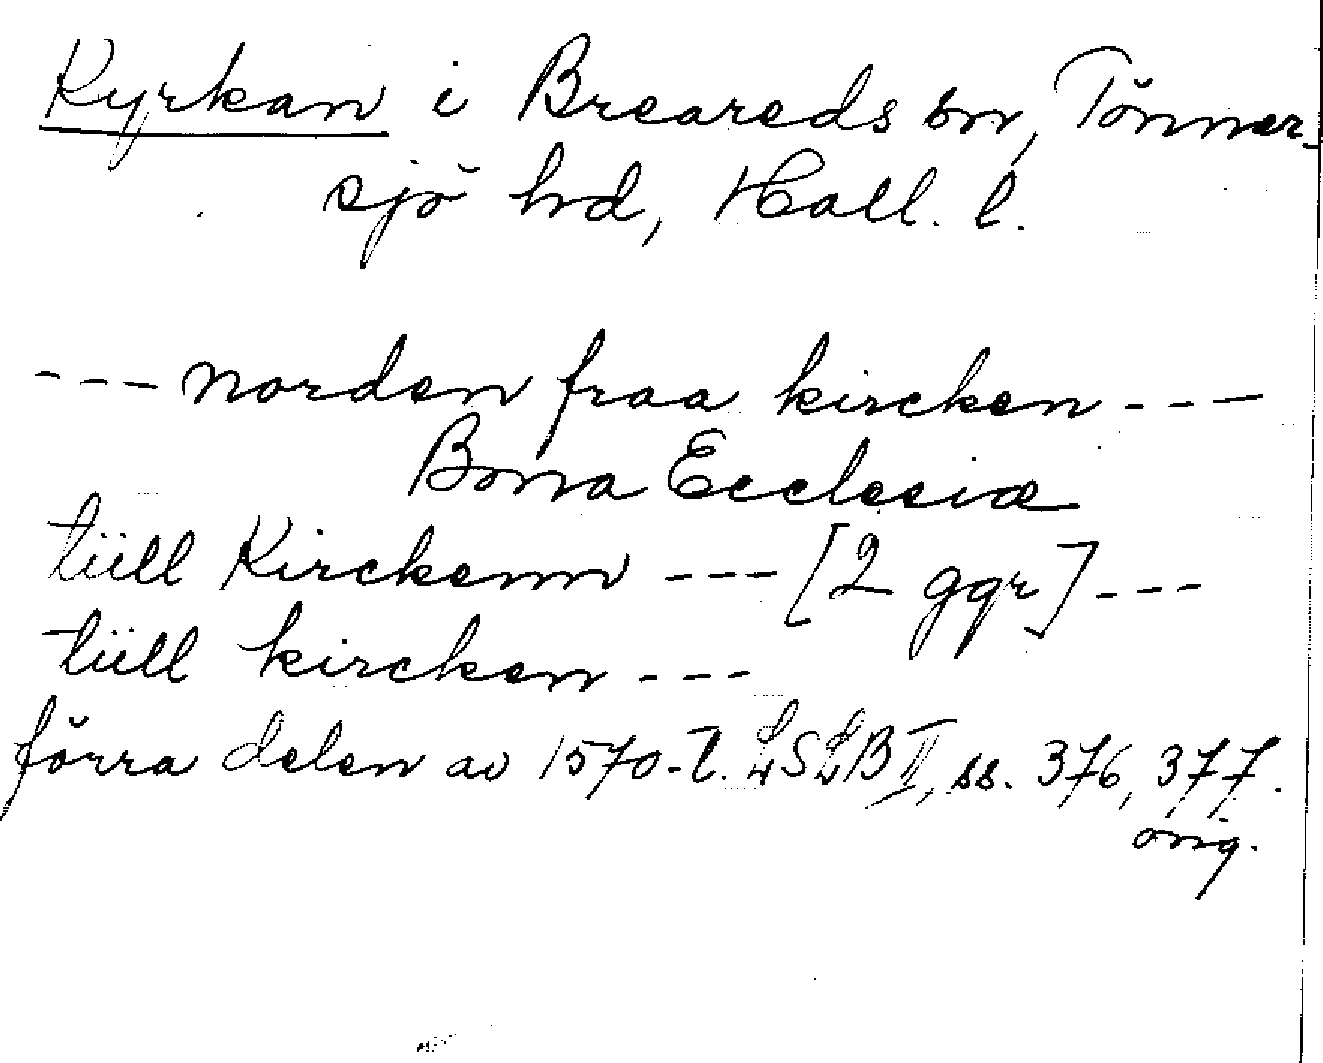 Kyrkan i Breareds sn, Tönner-
sjö hd, Hall. l.
--- norden fraa kircken ---
Bona Ecclesiæ
tiill Kirckenn --- [2 ggr] ---
tiill kircken ---
förra delen av 1570-t. LSLB II, ss. 376, 377.
orig.